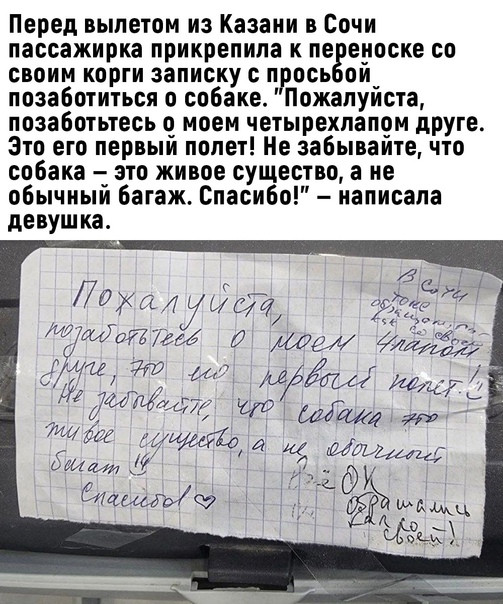 Перед вылетом из Казани в Сочи
пассажирка прикрепила к переноске со
своим корги записку с просьбой
позаботиться о собаке. "Пожалуйста,
позаботьтесь о моем четырехлапом друге.
Это его первый полет! Не забывайте, что
собака – это живое существо, а не
обычный багаж. Спасибо!" – написала
девушка.
В Сочи
тоже
обращались
как со своей
Пожалуйста,
позаботьтесь о моем 4лапом
друге, это его первый полет!
Не забывайте, что собака это
живое существо, а не обычный
багаж!!
Спасибо!
Всё ОК
обращались
как со
своей!